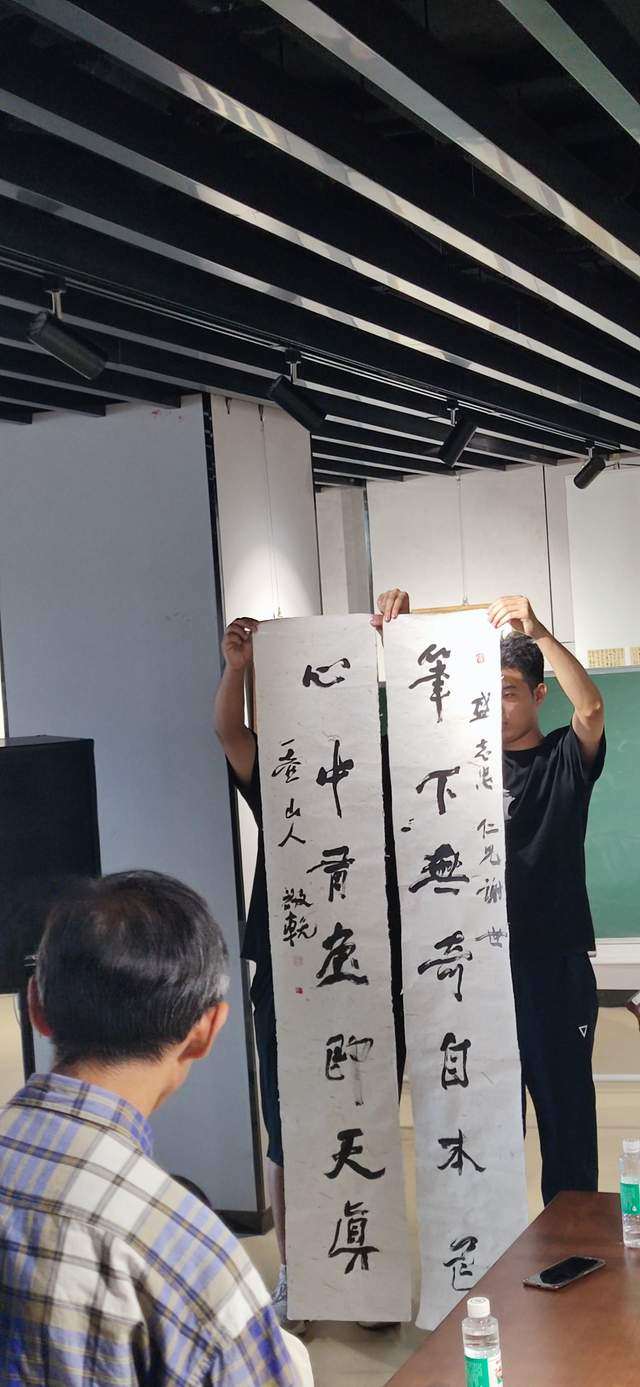 盛志 仁兄謝世
筆下無奇自本色
心中 即天真
一壺山人
敬輓